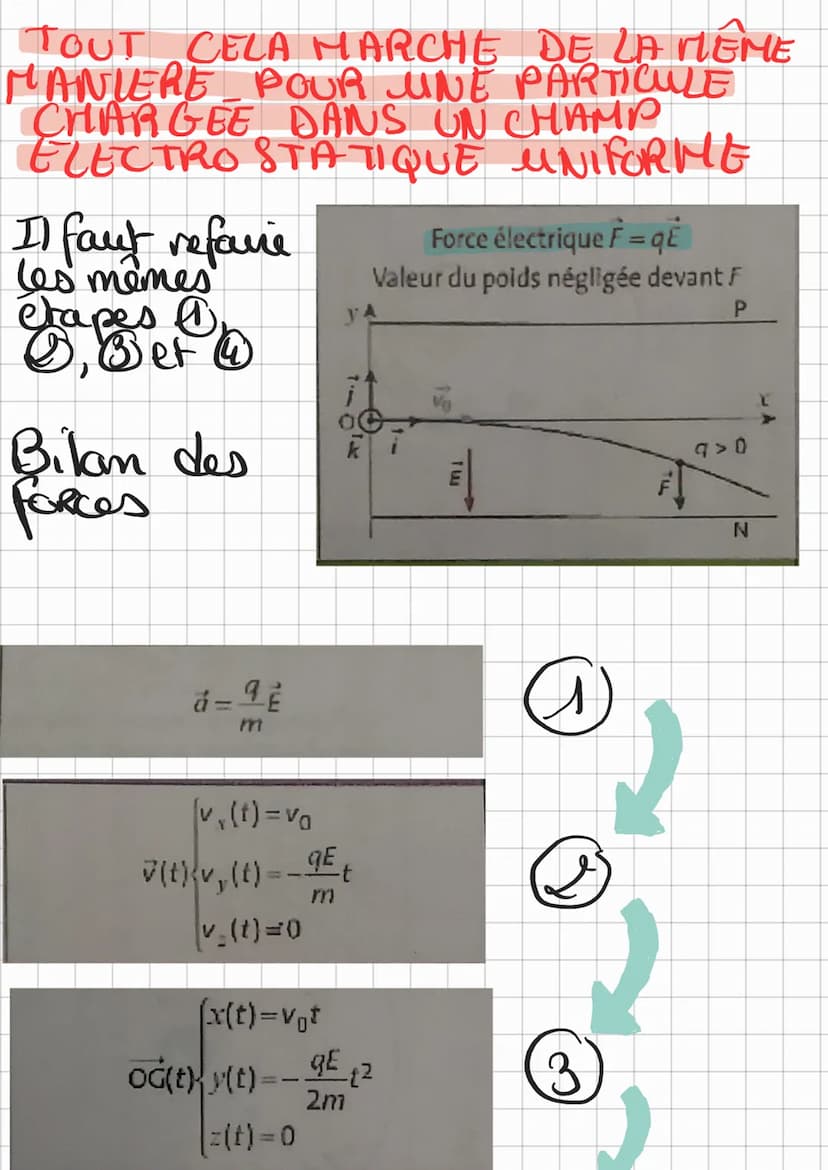 TOUT CELA MARCHE DE LA MÊME
MANIERE POUR UNE PARTICULE
CHARGÉE DANS UN CHAMP
ELECTROSTATIQUE UNIFORME
Il faut refaire
les mêmes
étapes ①,
②, ③ et ④
Bilan des
forces
Force électrique F⃗ = qE⃗
Valeur du poids négligée devant F
y
P
j⃗
v⃗₀
x
O
k⃗ i⃗
q > 0
E⃗
F⃗
N
a⃗ = q/m E⃗
①
v⃗(t) { vₓ(t) = v₀
v_y(t) = - qE/m t
v_z(t) = 0
②
OG⃗(t) { x(t) = v₀t
y(t) = - qE/2m t²
z(t) = 0
③